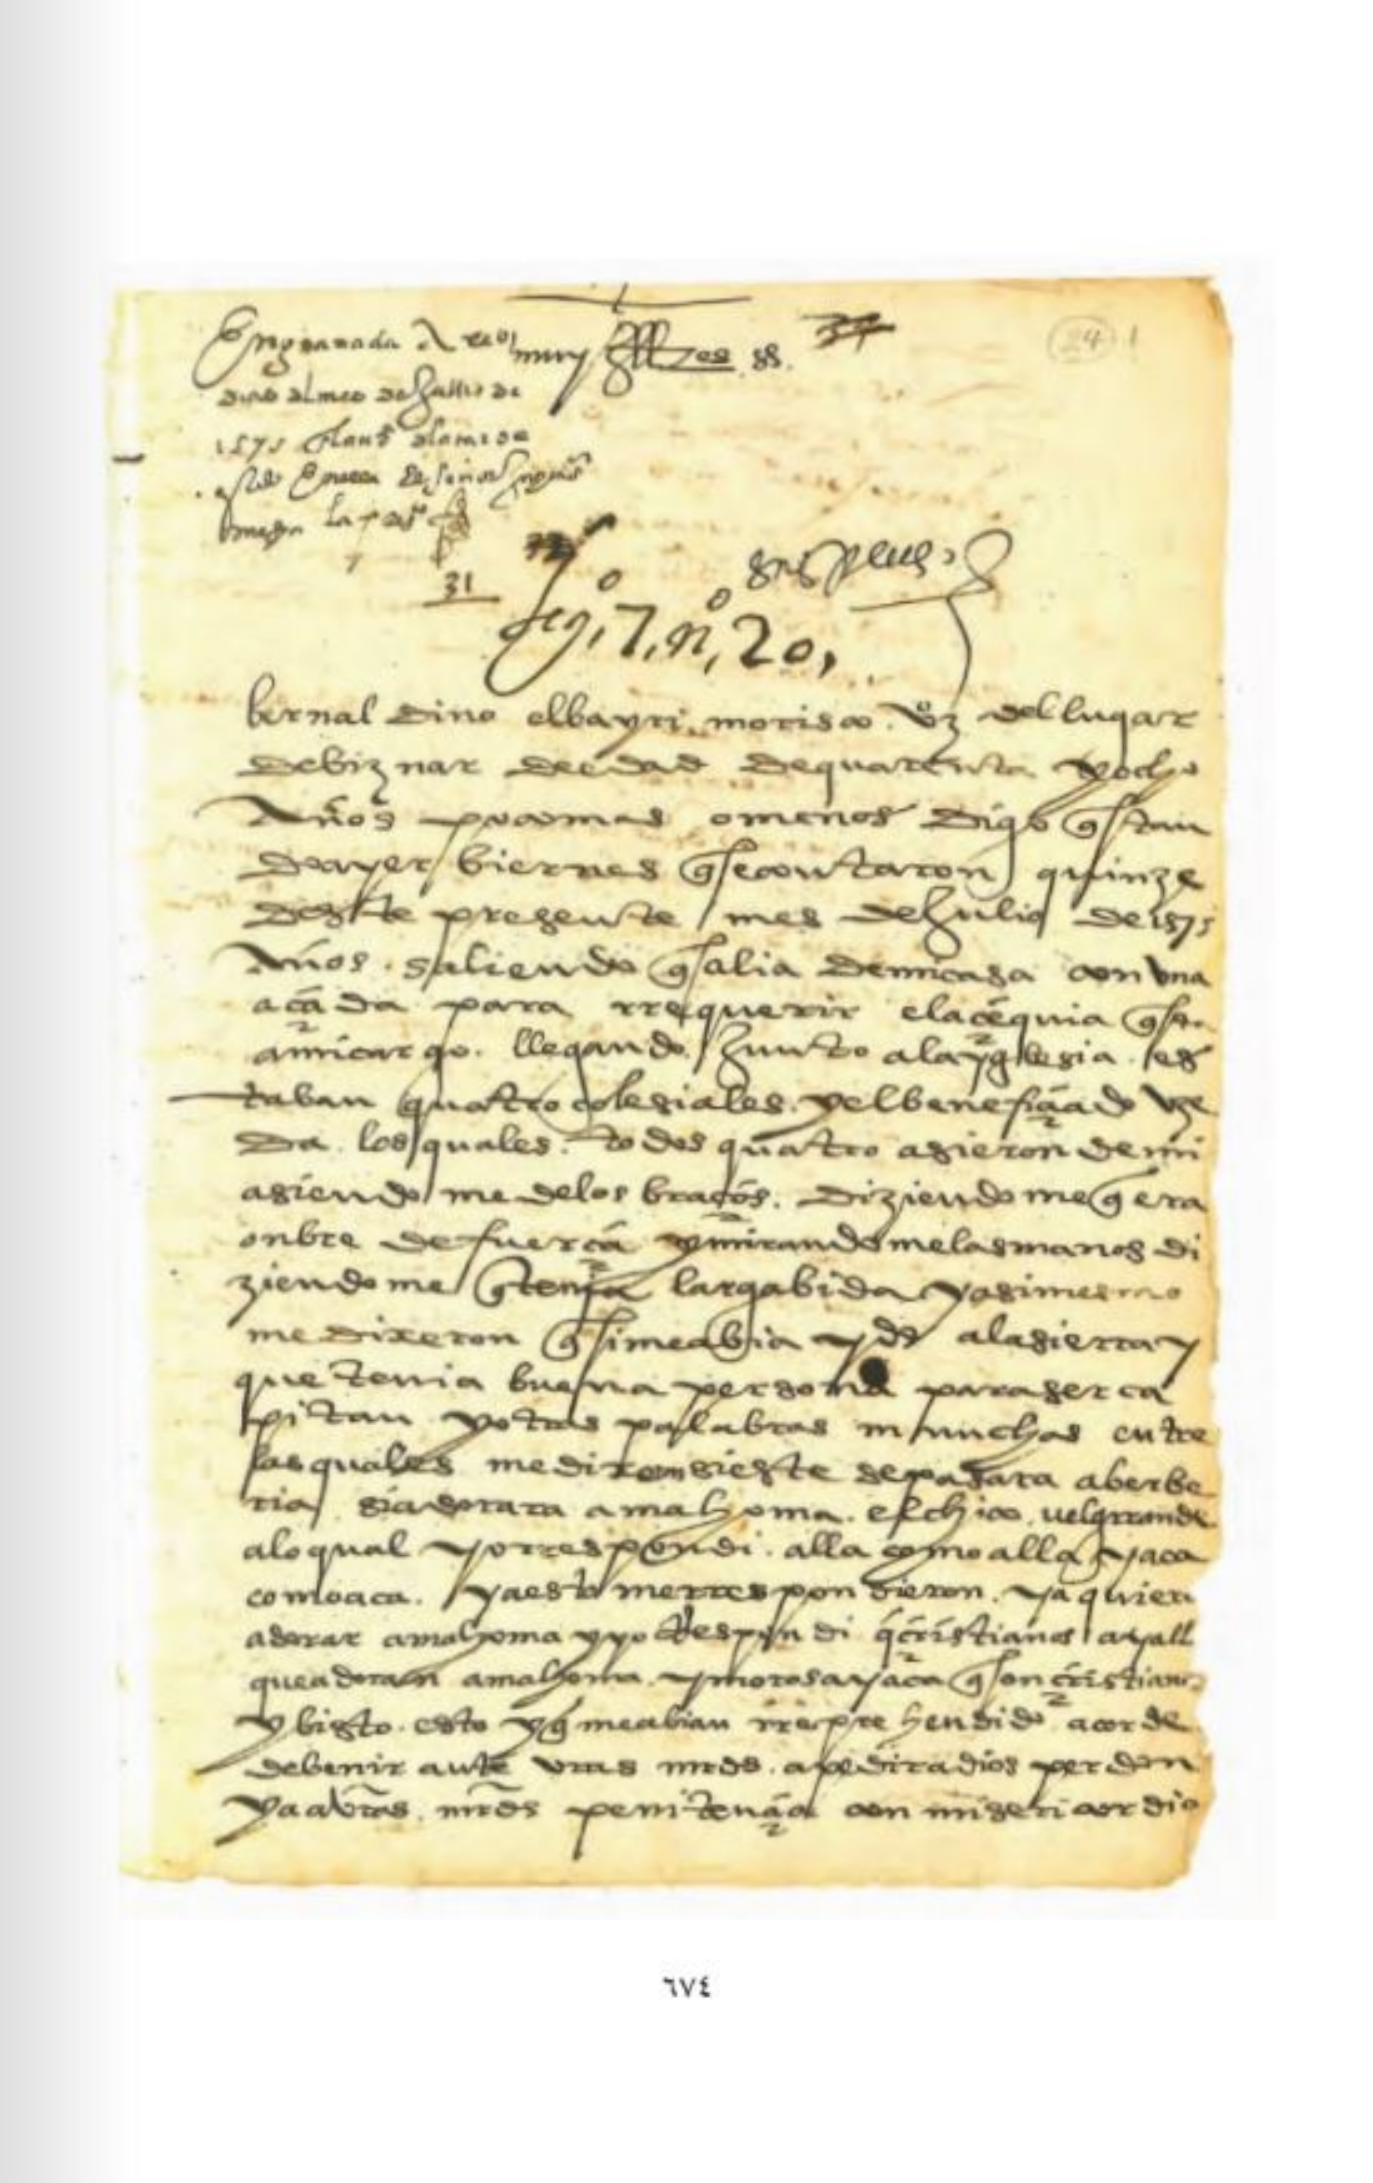 En granada
muy Illes ss.
24 1
1575
31
leg.º 7, n.º 20,
bernaldino elbayri morisco vº del lugar
de biznar de edad de quarenta y ocho
Años poco mas o menos digo q̃stan
do ayer biernes q̃ se contaron quinze
deste presente mes de Julio de 1575
Años. saliendo q̃ salia de mi casa con vna
açada para rrequerir el açequia q̃sta
a mi cargo. llegando Junto a la yglesia. es
taban quatro colesiales. y el benefiçiado vze
da. los quales. todos quatro asieron de mi
asiendo me de los braços. diziendo me q̃ era
onbre de fuerça y mirando me las manos di
ziendo me q̃ tenia larga bida y asimesmo
me dixeron q̃ si me abia ydo a la sierra y
que tenia buena persona para ser ca
pitan y otras palabras muchas entre
las quales me dixeron si este se pasara a berbe
ria si adorara a mahoma. el chico vel grande
a lo qual yo rrespondi. alla como alla y aca
como aca. y a esto me rrespondieron. ya quieres
adorar a mahoma y yo Respondi q̃ cristianos ay all
que adoran a mahoma. y moros ay aca q̃ son cristianos
y bisto. esto y q̃ me abian rreprehendido acorde
de benir ante vras mrds. a pedir a dios perdon
y a vras. mrds penitençia con misericordia
٦٧٤